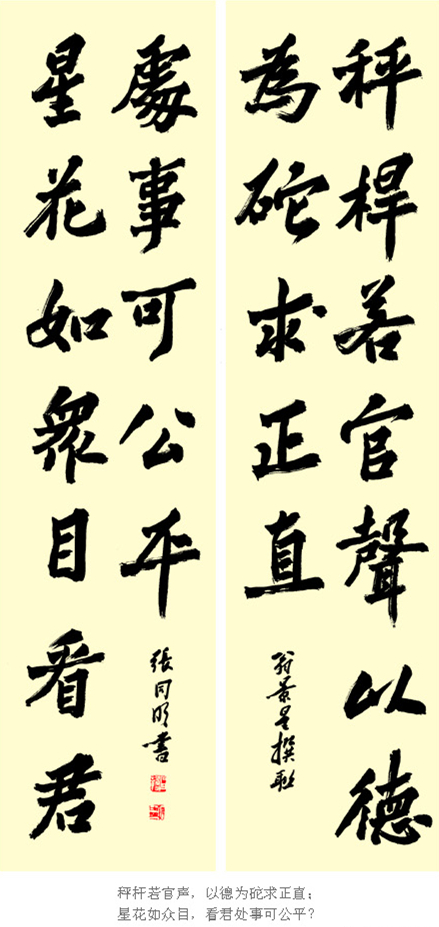 秤桿若官聲以德
為砣求正直
翁景星撰联
星花如衆目看君
處事可公平
張同明書
秤杆若官声，以德为砣求正直；
星花如众目，看君处事可公平？